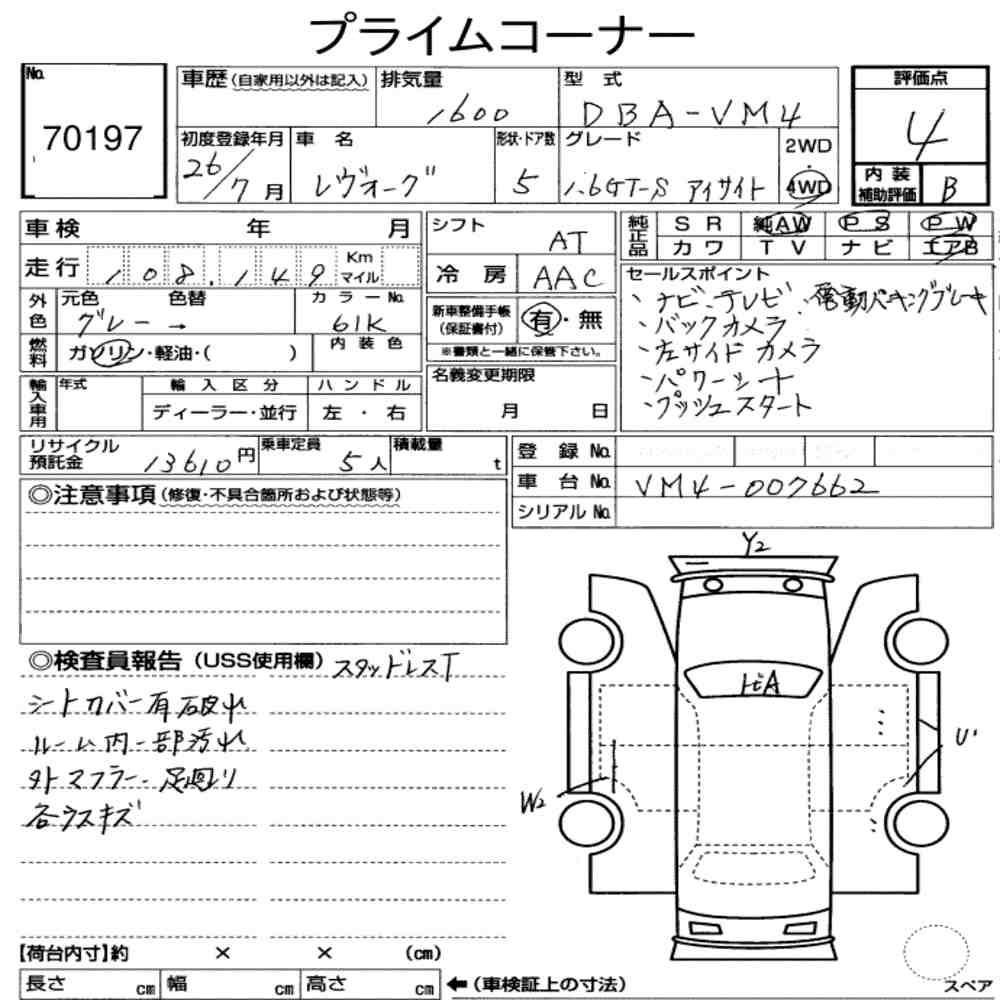 プライムコーナー
No.
70197
車歴(自家用以外は記入) 排気量 型式
1600 DBA-VM4
初度登録年月 車名 形状・ドア数 グレード 2WD・4WD
26/7月 レヴォーグ 5 1.6GT-S アイサイト
評価点
4
内装補助評価 B
車検 年 月
走行 108,149 Km マイル
外色 元色 色替 カラーNo.
グレー → 61K
燃料 ガソリン・軽油・( ) 内装色
輸入車用 年式 輸入区分 ハンドル
ディーラー・並行 左・右
シフト AT
冷房 AAC
新車整備手帳(保証書付) 有・無
※書類と一緒に保管下さい。
名義変更期限
月 日
純正品 SR 純AW PS PW
カワ TV ナビ エアB
セールスポイント
、ナビ、テレビ 、電動パーキングブレーキ
、バックカメラ
、左サイドカメラ
、パワーシート
、プッシュスタート
リサイクル預託金 13610円 乗車定員 5人 積載量 t
登録No.
車台No. VM4-007662
シリアルNo.
◎注意事項(修復・不具合箇所および状態等)
◎検査員報告(USS使用欄) スタッドレスT
シートカバー有 破れ
ルーム内一部汚れ
外マフラー・足廻り
各ウスキズ
Y2
トビA
U'
W2
【荷台内寸】約 × × (cm)
長さ cm 幅 cm 高さ cm ←(車検証上の寸法)
スペア